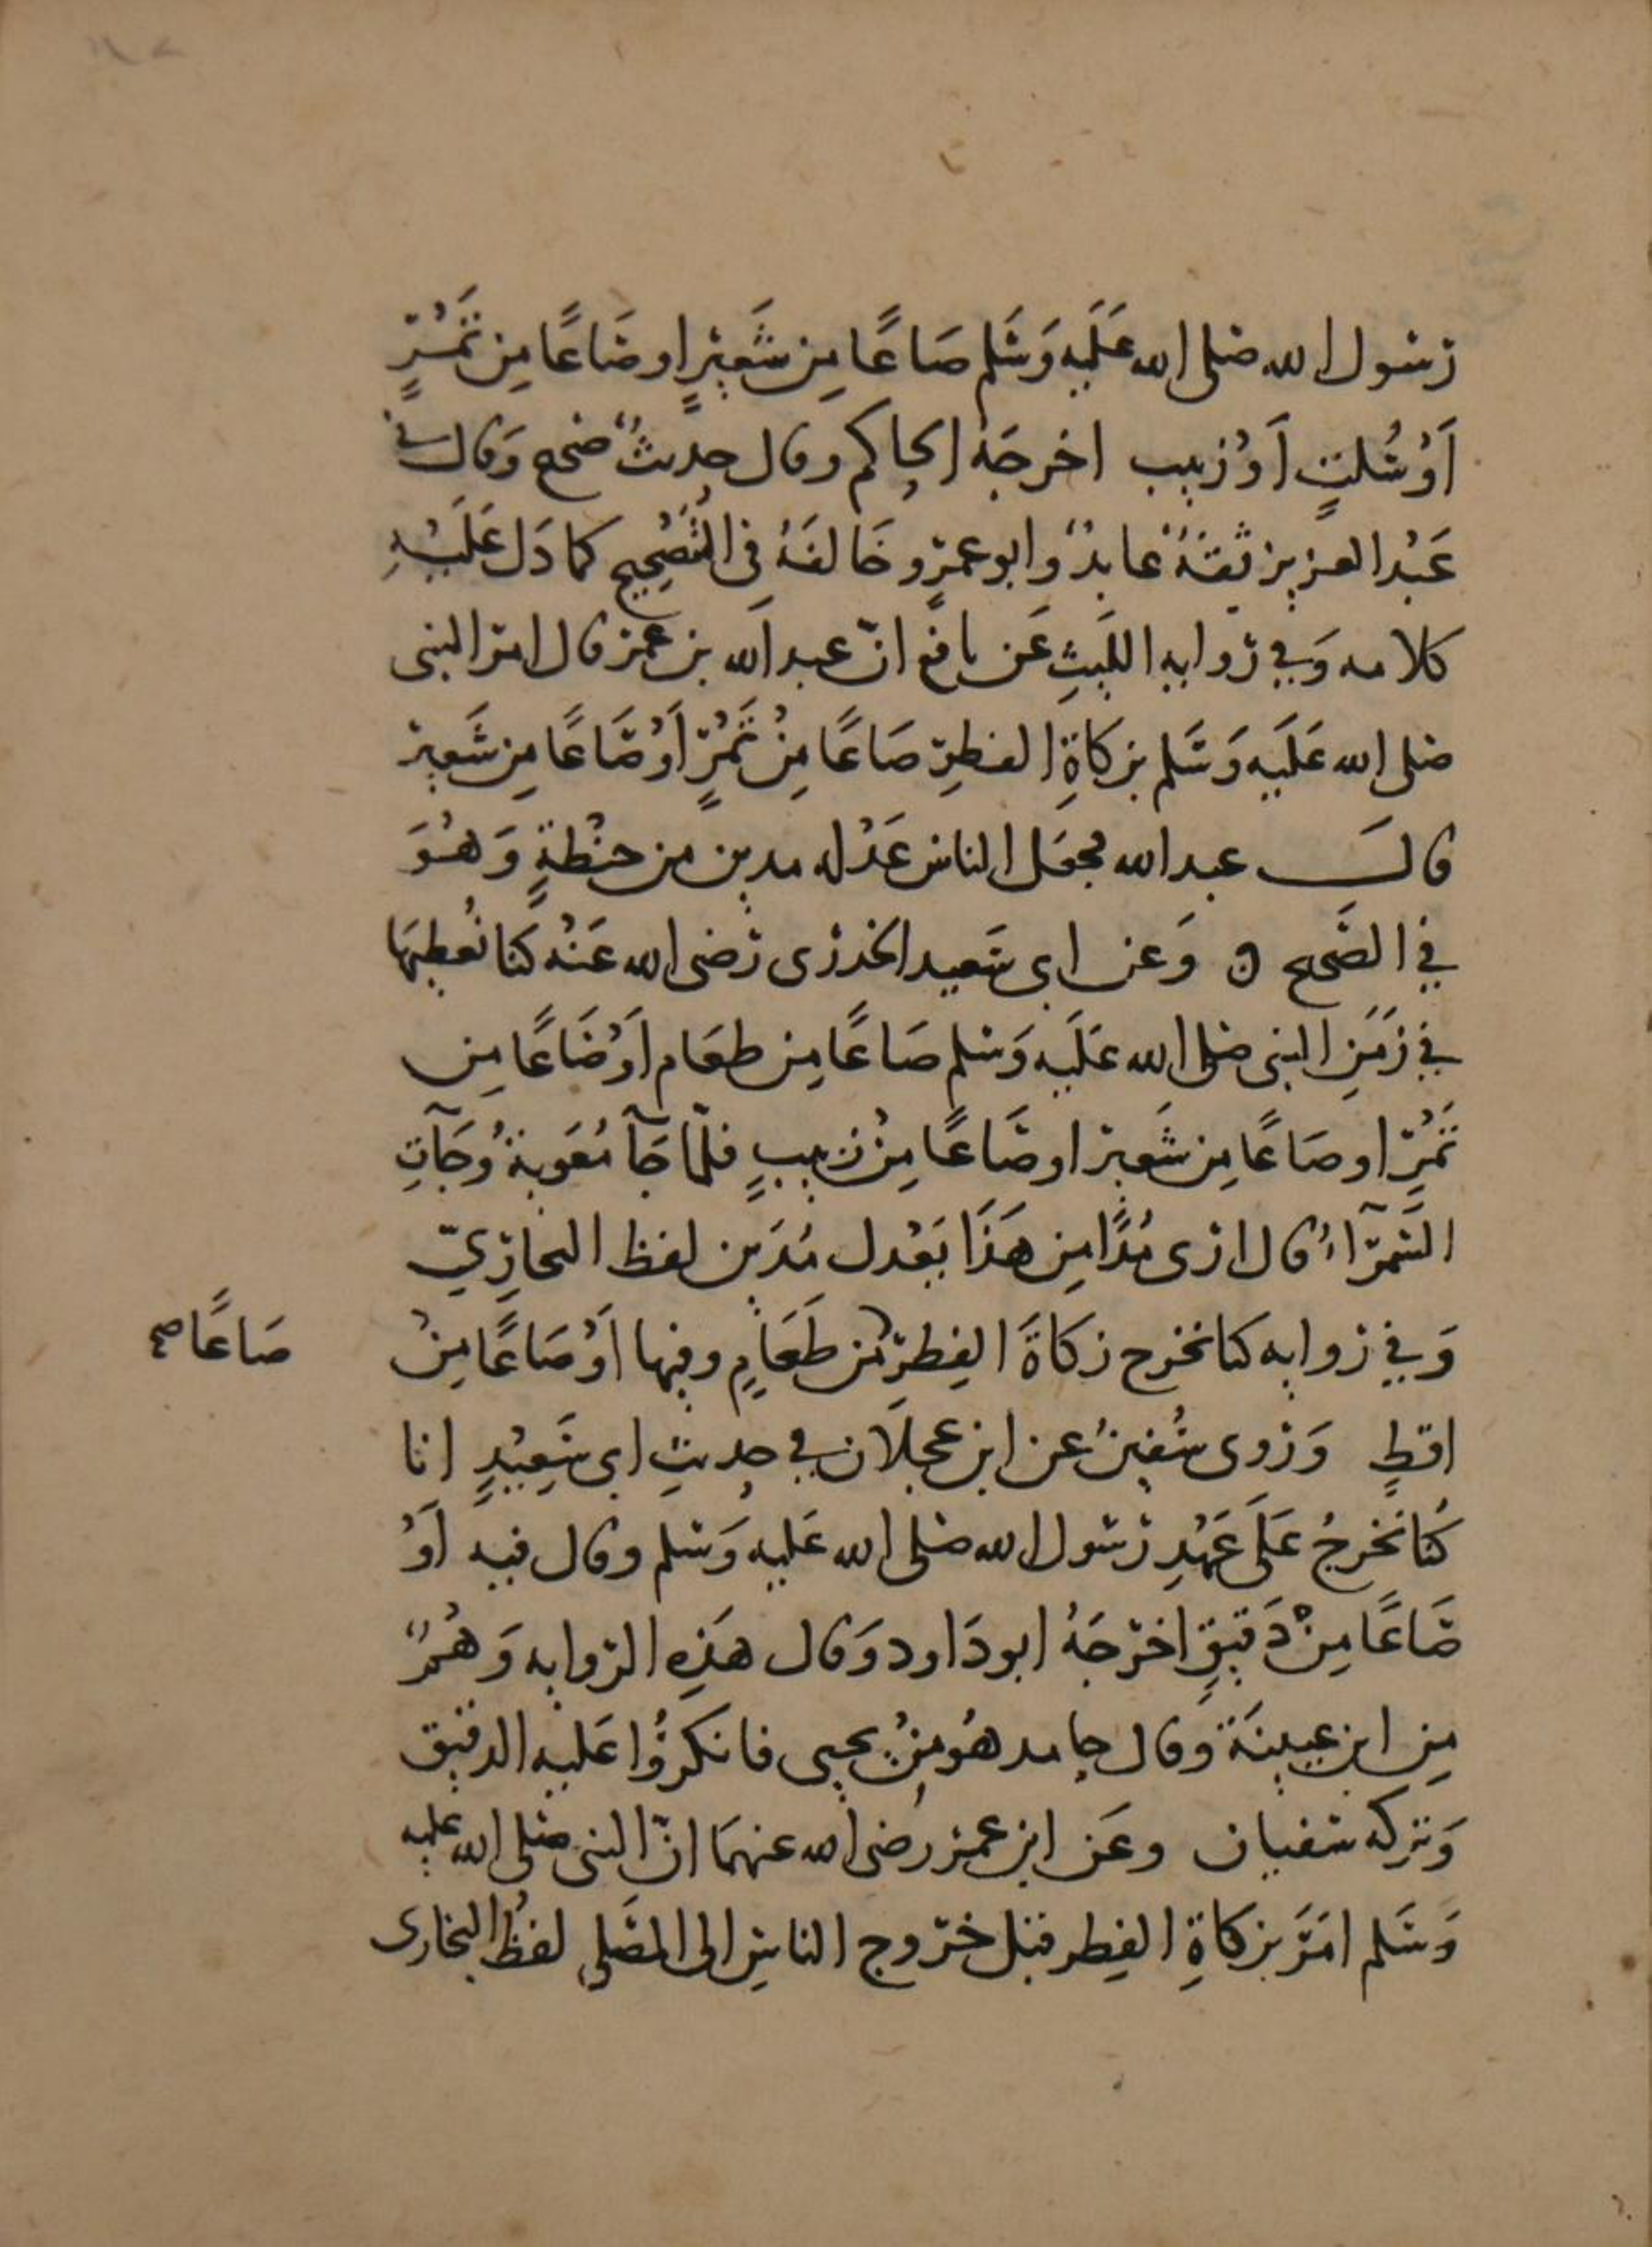 رسول الله صلى الله عَلَيه وَسَلم صَاعًا مِن شَعِيرٍ او صَاعًا مِن تَمْرٍ
أوْ سُلتٍ أوْ زبيب اخرجَهُ الحاكم وقال حديثٌ صحيح وَقال في
عَبْد العزيز ثقةٌ عابدٌ وابو عمرٍو خَالفَهُ في التصْحِيح كما دَل عَلَيْهِ
كلامه وَفي روايه اللَيثِ عَن نافع انّ عبد الله بن عمر قال امر النبى
صلى الله عَلَيه وَسَلم بزكاةِ الفطرِ صَاعًا مِنْ تَمْرٍ أوْ صَاعًا مِن شَعير
قال عبد الله فجعَل الناس عَدْله مدين من حنْطةٍ وَهُوَ
في الصَّحيح ه وَعن ابى سَعيد الخدرى رَضى الله عَنْهُ كنا نُعطيهَا
في زَمَنِ النبى صلى الله عَلَيه وَسلم صَاعًا مِن طعَام أوْ صَاعًا مِن
تَمْرٍ او صَاعًا مِن شَعير او صَاعًا مِنْ زبيبٍ فلمّا جَآ مُعَوية وَجَآتِ
السَّمرَآءُ قال ارى مُدًّا مِن هَذَا يَعْدل مُدَين لفظ البخارِيّ
وَفي روايه كنا نخرج زكاةَ الفِطرِ من طَعَامٍ وفيها أوْ صَاعًا مِنْ
صَاعًا صح
اقطٍ وَرَوى سُفين عن ابن عجلَان في حديثِ ابى سَعِيْدٍ انا
كُنا نخرجُ عَلَى عَهْدِ رَسُول الله صلى الله عَليه وَسَلم وقال فيه أوْ
صَاعًا مِنْ دَقيقٍ اخرَجَهُ ابو دَاود وَقال هَذِهِ الروايه وَهْمٌ
مِن ابن عيينَة وَقال حامد هُو بنُ يحيى فانكرُوا عَليه الدقيق
وَتركه سفيان وعَن ابن عمر رضى الله عنهمَا انّ النبى صلى الله عليه
وَسَلم امَرَ بزكاةِ الفِطر قبل خرُوج الناسِ الى المصَلى لفظُ البخارى